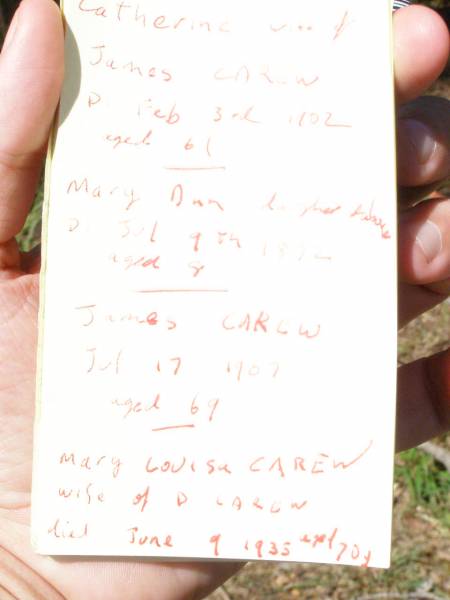 Catherine wife of
James CAREW
D. Feb 3rd 1902
aged 61
Mary Ann daughter Above
D. Jul 9th
aged 8
James CAREW
Jul 17 1907
aged 69
Mary Louisa CAREW
wife of D CAREW
died June 9 1935 aged 70y